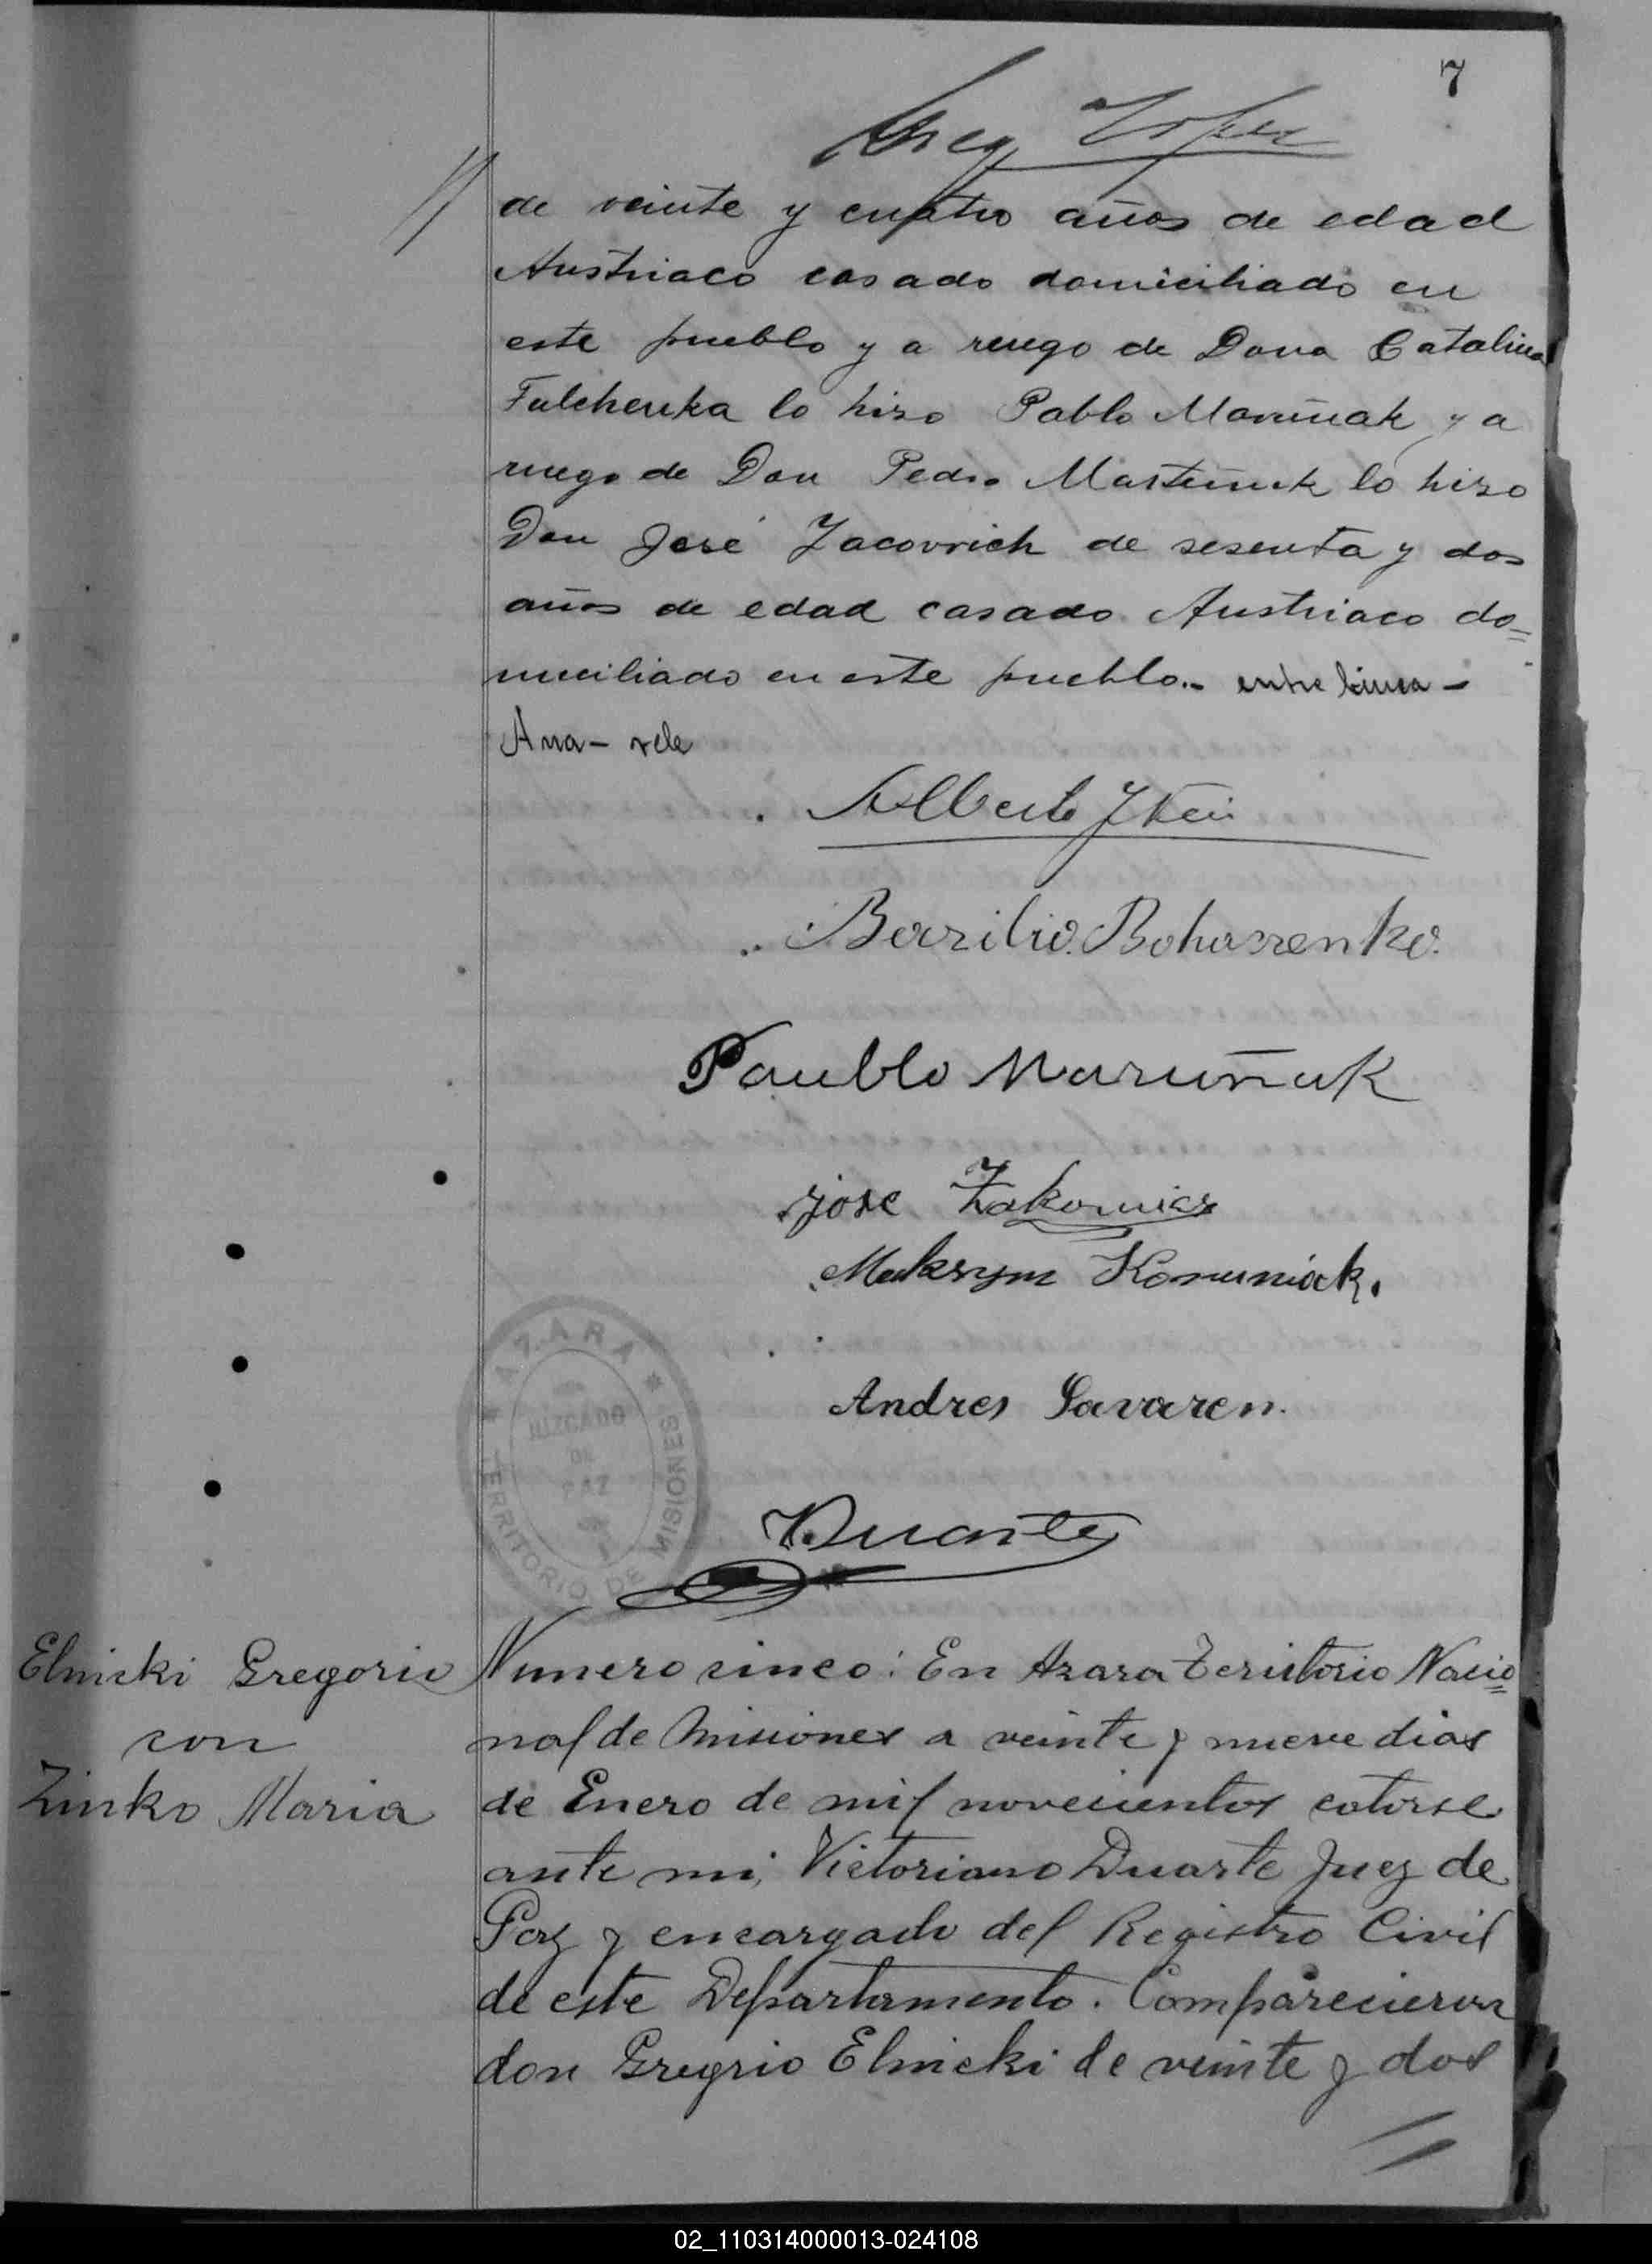 7
de veinte y cuatro años de edad
Austriaco casado domiciliado en
este pueblo y a ruego de Dona Catalina
Fulchenka lo hizo Pablo Maruñak y a
ruego de Don Pedro Martiñuk lo hizo
Don José Zacovvich de sesenta y dos
años de edad casado Austriaco do=
miciliado en este pueblo.- entre linea -
Ana - vele
Alberto
Bazilio Bohassenko.
Paublo Maruñuk
jose Zakowicz
Maksym Komuniack.
Andres Savaren.
AZARA
JUZGADO
DE
PAZ
TERRITORIO DE MISIONES
VDuarte
Elnicki Gregorio
con
Zinko Maria
Numero cinco: En Azara Territorio Nacio=
nal de Misiones a veinte y nueve dias
de Enero de mil novecientos catorse
ante mi, Victoriano Duarte Juez de
Paz y encargado del Registro Civil
de este Departamento. Comparecieron
don Gregrio Elnicki de veinte y dos
02_110314000013-024108